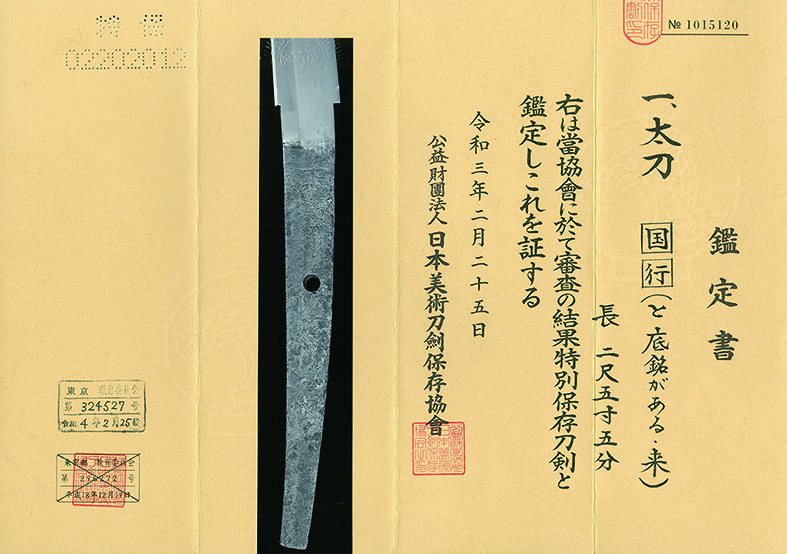 № 1015120
鑑定書
一、太刀 国行(と底銘がある・来)
長 二尺五寸五分
右は當協會に於て審査の結果特別保存刀剣と
鑑定しこれを証する
令和三年二月二十五日
公益財團法人 日本美術刀劍保存協會
02202012
東京
第 324527 号
令和 4年2月25日
東京都 教育委員会
第 296272 号
平成18年12月19日